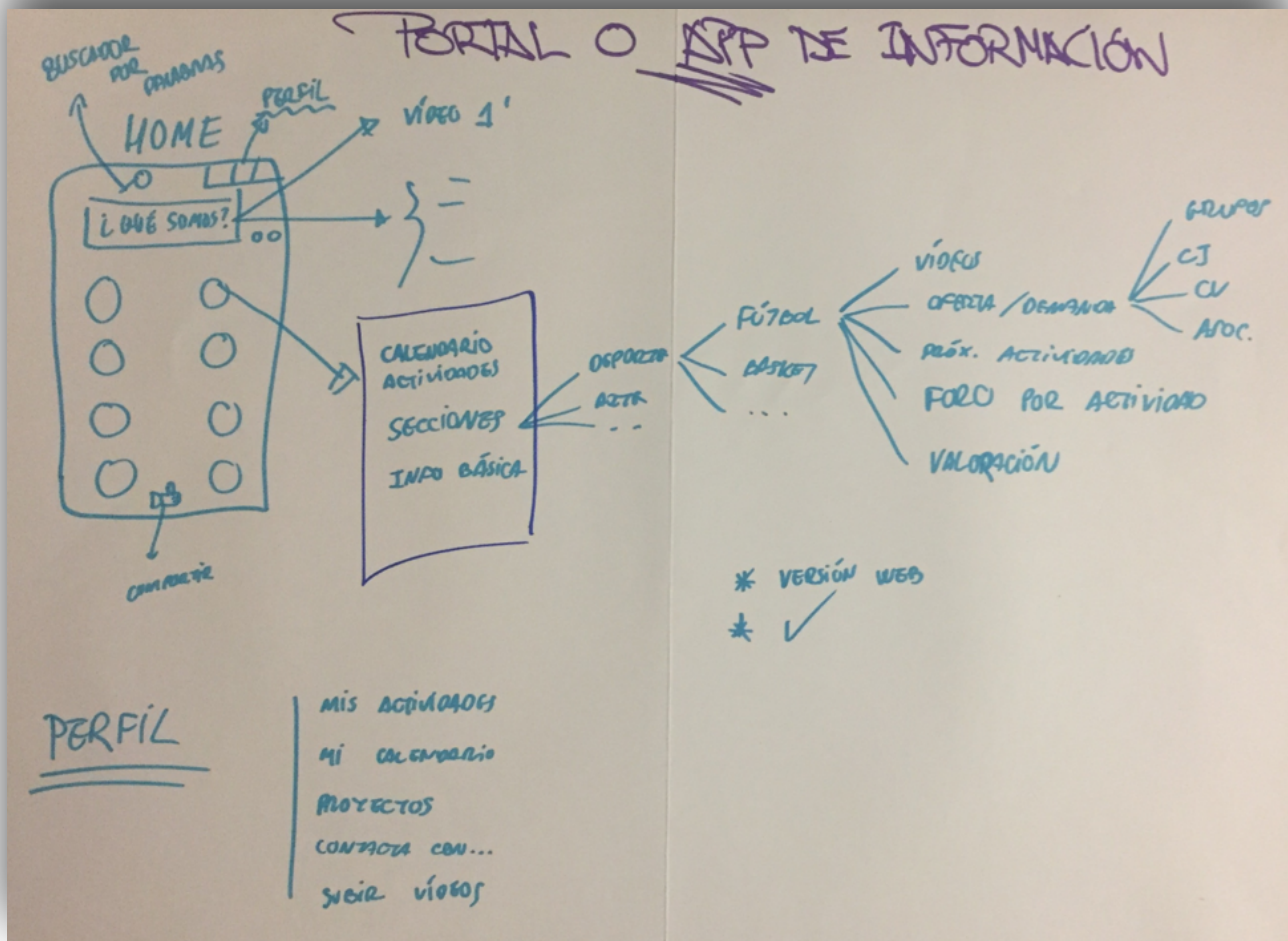 PORTAL O APP DE INFORMACIÓN
BUSCADOR
POR
PALABRAS
PERFIL
HOME
VÍDEO 1'
¿QUÉ SOMOS?
CALENDARIO
ACTIVIDADES
SECCIONES
INFO BÁSICA
DEPORTE
ARTE
...
FÚTBOL
BASKET
...
VÍDEOS
OFERTA / DEMANDA
PRÓX. ACTIVIDADES
FORO POR ACTIVIDAD
VALORACIÓN
GRUPOS
CJ
CV
ASOC.
COMPARTIR
* VERSIÓN WEB
*
PERFÍL
MIS ACTIVIDADES
MI CALENDARIO
PROYECTOS
CONTACTA CON...
SUBIR VÍDEOS